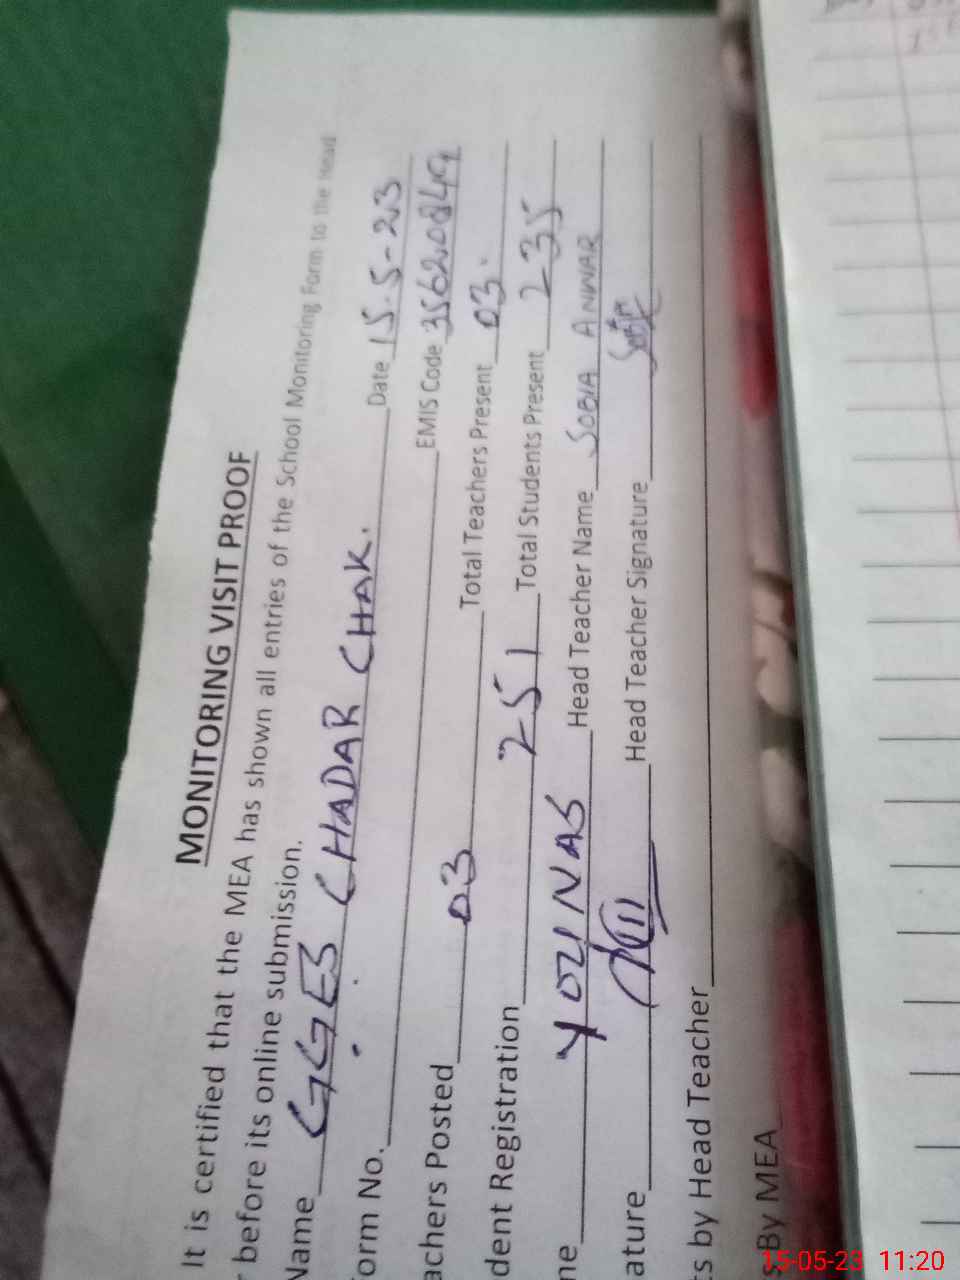 MONITORING VISIT PROOF
It is certified that the MEA has shown all entries of the School Monitoring Form to the Head
r before its online submission.
Name GGES CHADAR CHAK. Date 15-5-23
orm No. EMIS Code 35620849
achers Posted 03 Total Teachers Present 03.
dent Registration 251 Total Students Present 235
me YOUNAS Head Teacher Name SOBIA ANWAR
ature Head Teacher Signature
ts by Head Teacher
s By MEA
15-05-23 11:20